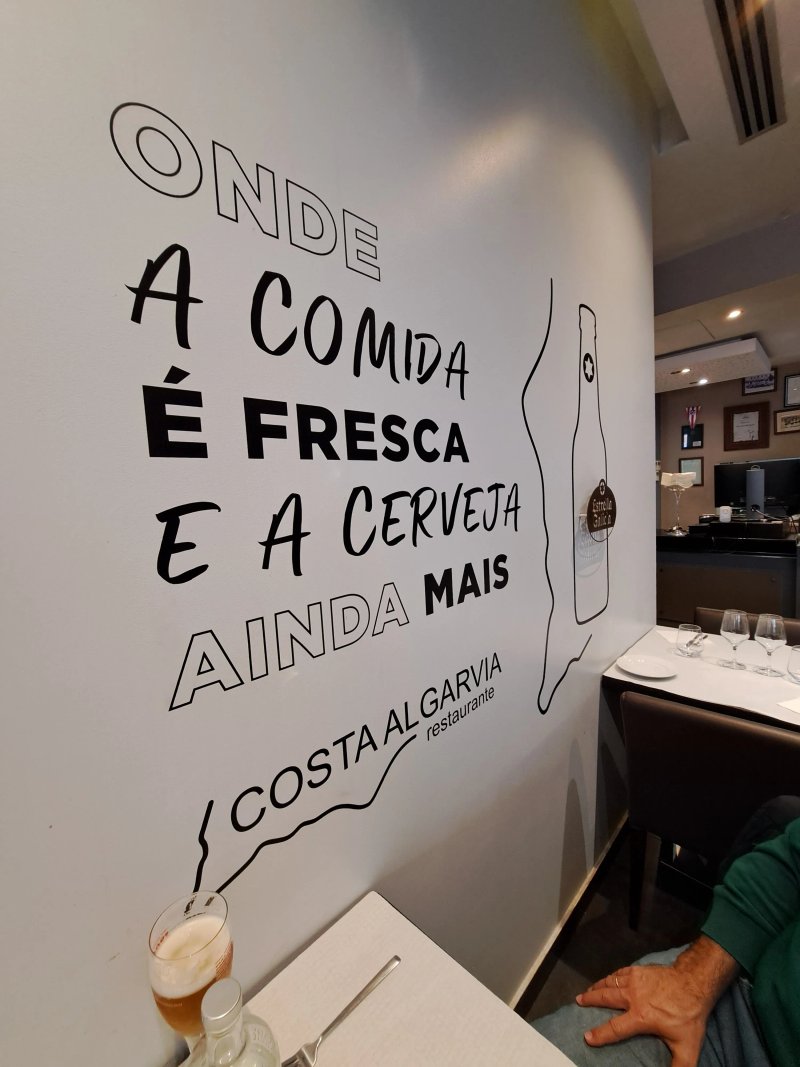 ONDE
A COMIDA
É FRESCA
E A CERVEJA
AINDA MAIS
COSTA ALGARVIA
restaurante
Estrella
Galicia